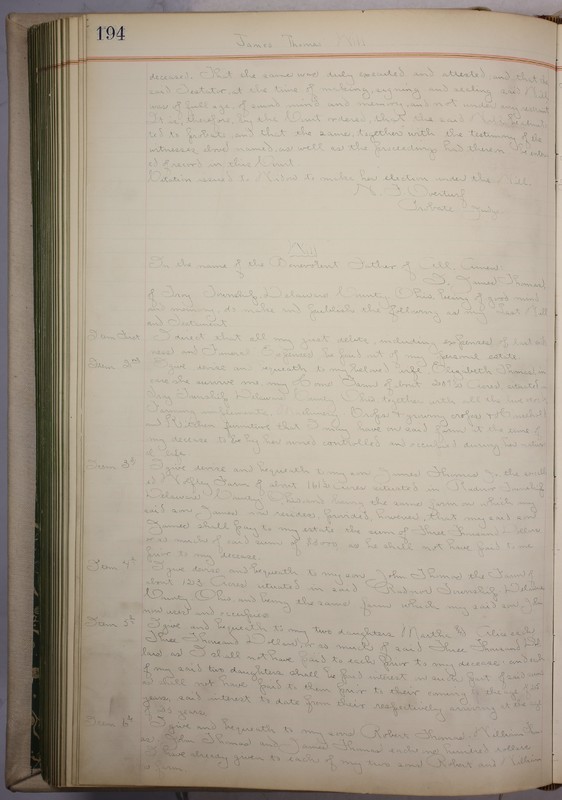 194
James Thomas Will
deceased. That the same was duly executed and attested, and that the
said Testator, at the time of making, signing and sealing said Will
was of full age, of sound mind and memory, and not under any restraint
It is, therefore, by the Court ordered, that the said Will be admit
ted to probate, and that the same, together with the testimony of the
witnesses above named, as well as the proceedings had therein be enter
ed of record in this Court.
Citation issued to Widow to make her election under the Will.
Probate Judge
Will
In the name of the Benevolent Father of All Amen
I, James Thomas
of Troy Township, Delaware County, Ohio, being of good mind
and memory, do make and publish the following as my last Will
and Testament
Item First I direct that all my just debts, including expenses of last sick
ness and Funeral Expenses be paid out of my personal estate.
Item 2nd I give devise and bequeath to my beloved wife Elizabeth Thomas in
case she survive me, my Home Farm of about Acres situated in
Troy Township Delaware County Ohio together with all the
Farming implements, Crops & growing crops & Household
and Kitchen furniture that I may have on said farm at the time of
my decease to be by her owned controlled and occupied during her natu
of life.
Item 3d I give devise and bequeath to my son James Thomas Jr. the
Farm of about 161 Acres situated in Radnor Township
Delaware County Ohio and being the same farm on which my
said son James now resides, provided, however, that my said son
James shall pay to my estate the sum of Three Thousand Dollars
or so much of said sum of as he shall not have paid to me
prior to my decease.
Item 4th I give devise and bequeath to my son John Thomas the Farm of
about 123 Acres situated in said Radnor Township Delaware
County Ohio, and being the same farm which my said son John
now uses and occupies
Item 5th I give and bequeath to my two daughters each
Three Thousand Dollars, or so much of said Three Thousand Dol
lars as I shall not have paid to each prior to my decease, and each
of my said two daughters shall be paid interest on such part of said sum
as I shall not have paid to them prior to their coming to the age of 25
years, said interest to date from their respectively arriving at the age
of 25 years.
Item 6th I give and bequeath to my sons Robert Thomas, William
John Thomas and James Thomas each one hundred dollars
I have already given to each of my two sons Robert and William
a farm